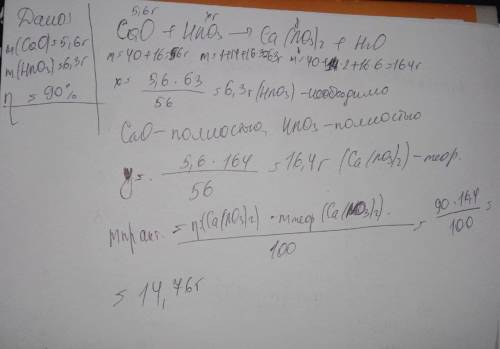 Дано:
m(CaO)=5,6г
m(HNO₃)=6,3г
η = 90%
5,6г xг y
CaO + HNO₃ → Ca(NO₃)₂ + H₂O
m=40+16=56г m=1+14+16·3=63г m=40+14·2+16·6=164г
x = 5,6·63 / 56 = 6,3г (HNO₃) - необходимо
CaO - полностью, HNO₃ - полностью
y = 5,6·164 / 56 = 16,4г (Ca(NO₃)₂) - теор.
m практ. = η(Ca(NO₃)₂) · m теор (Ca(NO₃)₂). / 100 = 90·16,4 / 100 =
= 14,76г